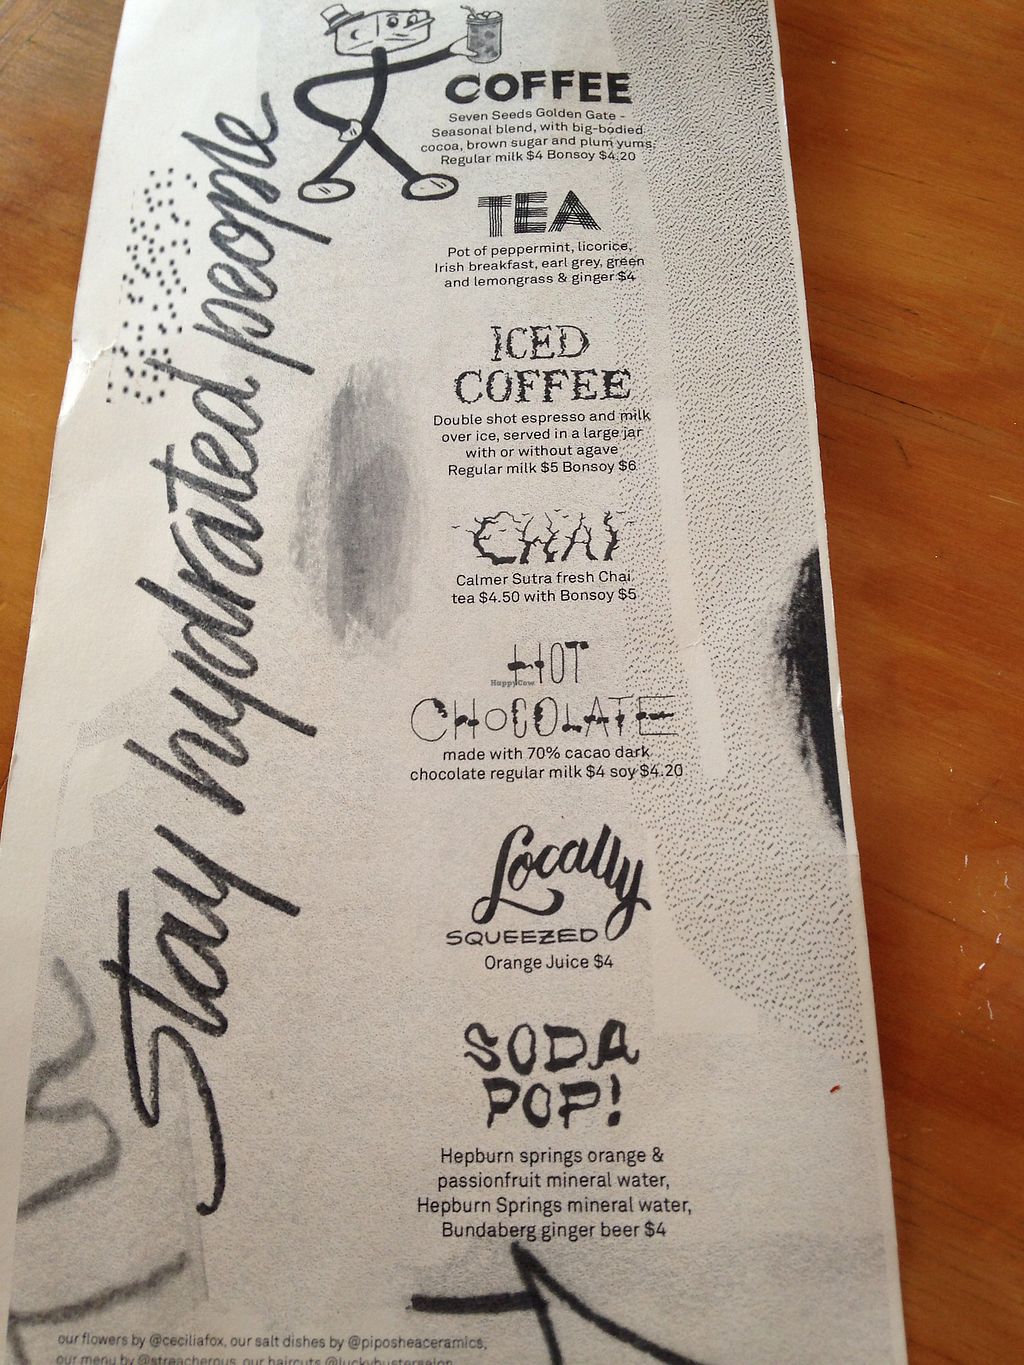 Stay hydrated people
COFFEE
Seven Seeds Golden Gate -
Seasonal blend, with big-bodied
cocoa, brown sugar and plum yums.
Regular milk $4 Bonsoy $4.20
TEA
Pot of peppermint, licorice,
Irish breakfast, earl grey, green
and lemongrass & ginger $4
ICED
COFFEE
Double shot espresso and milk
over ice, served in a large jar
with or without agave
Regular milk $5 Bonsoy $6
CHAI
Calmer Sutra fresh Chai
tea $4.50 with Bonsoy $5
HOT
HappyCow
CHOCOLATE
made with 70% cacao dark
chocolate regular milk $4 soy $4.20
Locally
SQUEEZED
Orange Juice $4
SODA
POP!
Hepburn springs orange &
passionfruit mineral water,
Hepburn Springs mineral water,
Bundaberg ginger beer $4
our flowers by @ceciliafox, our salt dishes by @piposheaceramics,
our menu by @streacherous, our haircuts @luckybustersalon